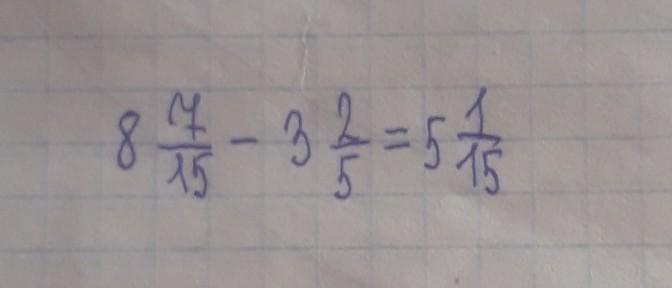 8 7/15 - 3 2/5 = 5 1/15